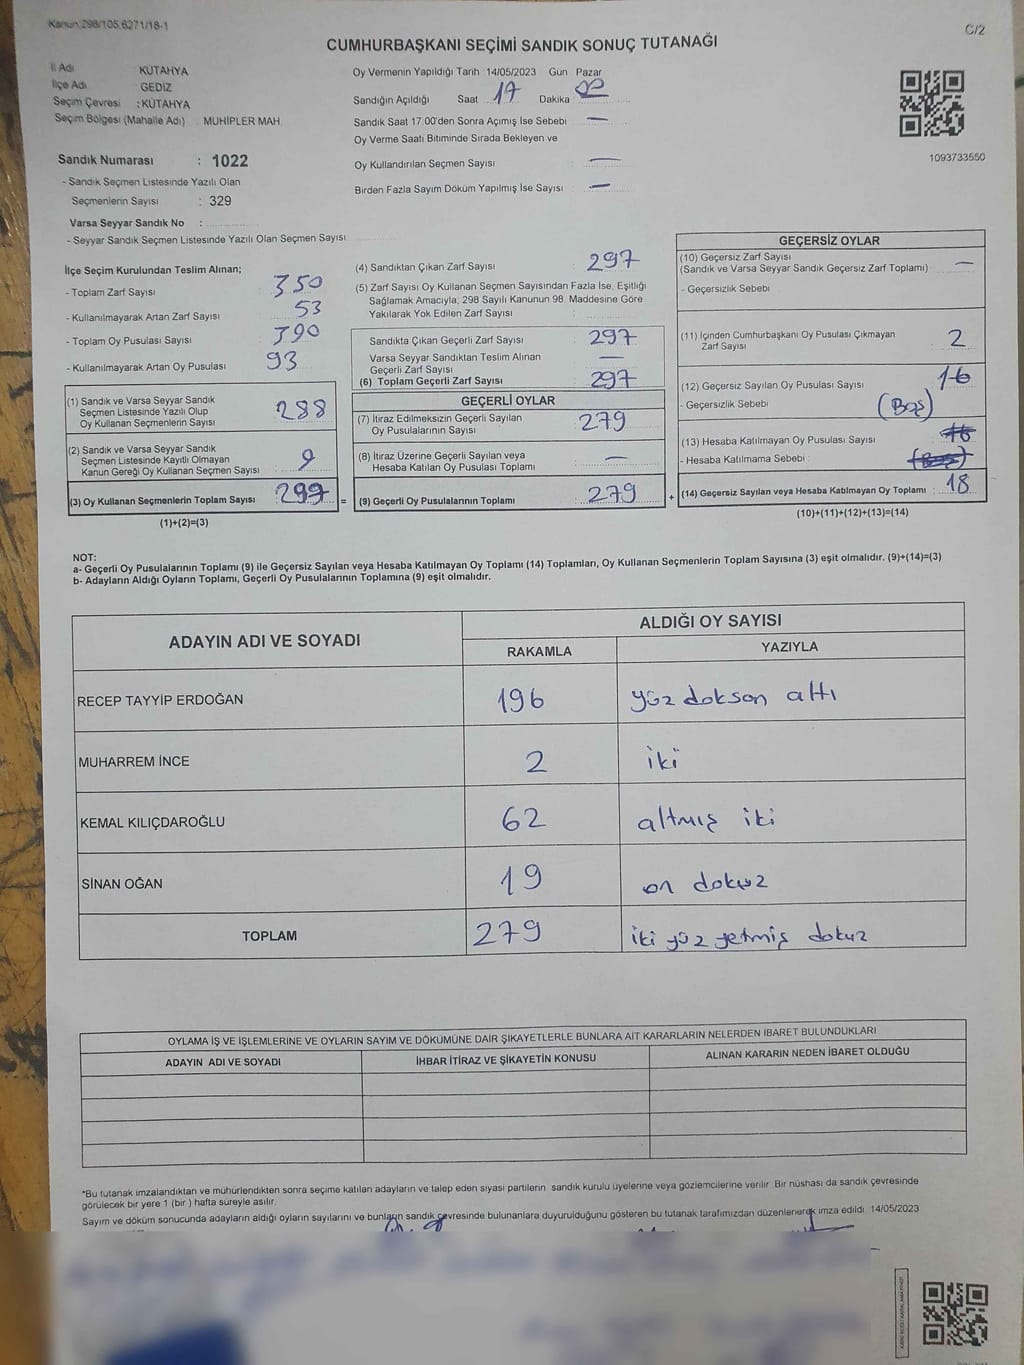 Kanun:298/105,6271/18-1
C/2
CUMHURBAŞKANI SEÇİMİ SANDIK SONUÇ TUTANAĞI
İl Adı KÜTAHYA
İlçe Adı GEDİZ
Seçim Çevresi : KÜTAHYA
Seçim Bölgesi (Mahalle Adı) MUHİPLER MAH.
Sandık Numarası : 1022
- Sandık Seçmen Listesinde Yazılı Olan
Seçmenlerin Sayısı : 329
Varsa Seyyar Sandık No :
- Seyyar Sandık Seçmen Listesinde Yazılı Olan Seçmen Sayısı
Oy Vermenin Yapıldığı Tarih 14/05/2023 Gün Pazar
Sandığın Açıldığı Saat 17 Dakika 02
Sandık Saat 17.00'den Sonra Açımış İse Sebebi —
Oy Verme Saati Bitiminde Sırada Bekleyen ve
Oy Kullandırılan Seçmen Sayısı : —
Birden Fazla Sayım Döküm Yapılmış İse Sayısı : —
1093733550
İlçe Seçim Kurulundan Teslim Alınan;
- Toplam Zarf Sayısı : 350
- Kullanılmayarak Artan Zarf Sayısı : 53
- Toplam Oy Pusulası Sayısı : 390
- Kullanılmayarak Artan Oy Pusulası : 93
(1) Sandık ve Varsa Seyyar Sandık
Seçmen Listesinde Yazılı Olup
Oy Kullanan Seçmenlerin Sayısı : 288
(2) Sandık ve Varsa Seyyar Sandık
Seçmen Listesinde Kayıtlı Olmayan
Kanun Gereği Oy Kullanan Seçmen Sayısı : 9
(3) Oy Kullanan Seçmenlerin Toplam Sayısı : 297 =
(1)+(2)=(3)
(4) Sandıktan Çıkan Zarf Sayısı : 297
(5) Zarf Sayısı Oy Kullanan Seçmen Sayısından Fazla İse, Eşitliği
Sağlamak Amacıyla, 298 Sayılı Kanunun 98. Maddesine Göre
Yakılarak Yok Edilen Zarf Sayısı :
Sandıkta Çıkan Geçerli Zarf Sayısı : 297
Varsa Seyyar Sandıktan Teslim Alınan
Geçerli Zarf Sayısı : —
(6) Toplam Geçerli Zarf Sayısı : 297
GEÇERLİ OYLAR
(7) İtiraz Edilmeksizin Geçerli Sayılan
Oy Pusulalarının Sayısı : 279
(8) İtiraz Üzerine Geçerli Sayılan veya
Hesaba Katılan Oy Pusulası Toplamı : —
(9) Geçerli Oy Pusulalarının Toplamı : 279 +
GEÇERSİZ OYLAR
(10) Geçersiz Zarf Sayısı
(Sandık ve Varsa Seyyar Sandık Geçersiz Zarf Toplamı) : —
- Geçersizlik Sebebi :
(11) İçinden Cumhurbaşkanı Oy Pusulası Çıkmayan
Zarf Sayısı : 2
(12) Geçersiz Sayılan Oy Pusulası Sayısı : 16
- Geçersizlik Sebebi : (Boş)
(13) Hesaba Katılmayan Oy Pusulası Sayısı : 16
- Hesaba Katılmama Sebebi : (Boş)
(14) Geçersiz Sayılan veya Hesaba Katılmayan Oy Toplamı : 18
(10)+(11)+(12)+(13)=(14)
NOT:
a- Geçerli Oy Pusulalarının Toplamı (9) ile Geçersiz Sayılan veya Hesaba Katılmayan Oy Toplamı (14) Toplamları, Oy Kullanan Seçmenlerin Toplam Sayısına (3) eşit olmalıdır. (9)+(14)=(3)
b- Adayların Aldığı Oyların Toplamı, Geçerli Oy Pusulalarının Toplamına (9) eşit olmalıdır.
ADAYIN ADI VE SOYADI ALDIĞI OY SAYISI
RAKAMLA YAZIYLA
RECEP TAYYİP ERDOĞAN 196 yüz doksan altı
MUHARREM İNCE 2 iki
KEMAL KILIÇDAROĞLU 62 altmış iki
SİNAN OĞAN 19 on dokuz
TOPLAM 279 iki yüz yetmiş dokuz
OYLAMA İŞ VE İŞLEMLERİNE VE OYLARIN SAYIM VE DÖKÜMÜNE DAİR ŞİKAYETLERLE BUNLARA AİT KARARLARIN NELERDEN İBARET BULUNDUKLARI
ADAYIN ADI VE SOYADI İHBAR İTİRAZ VE ŞİKAYETİN KONUSU ALINAN KARARIN NEDEN İBARET OLDUĞU
*Bu tutanak imzalandıktan ve mühürlendikten sonra seçime katılan adayların ve talep eden siyasi partilerin sandık kurulu üyelerine veya gözlemcilerine verilir. Bir nüshası da sandık çevresinde
görülecek bir yere 1 (bir ) hafta süreyle asılır.
Sayım ve döküm sonucunda adayların aldığı oyların sayılarını ve bunların sandık çevresinde bulunanlara duyurulduğunu gösteren bu tutanak tarafımızdan düzenlenerek imza edildi. 14/05/2023